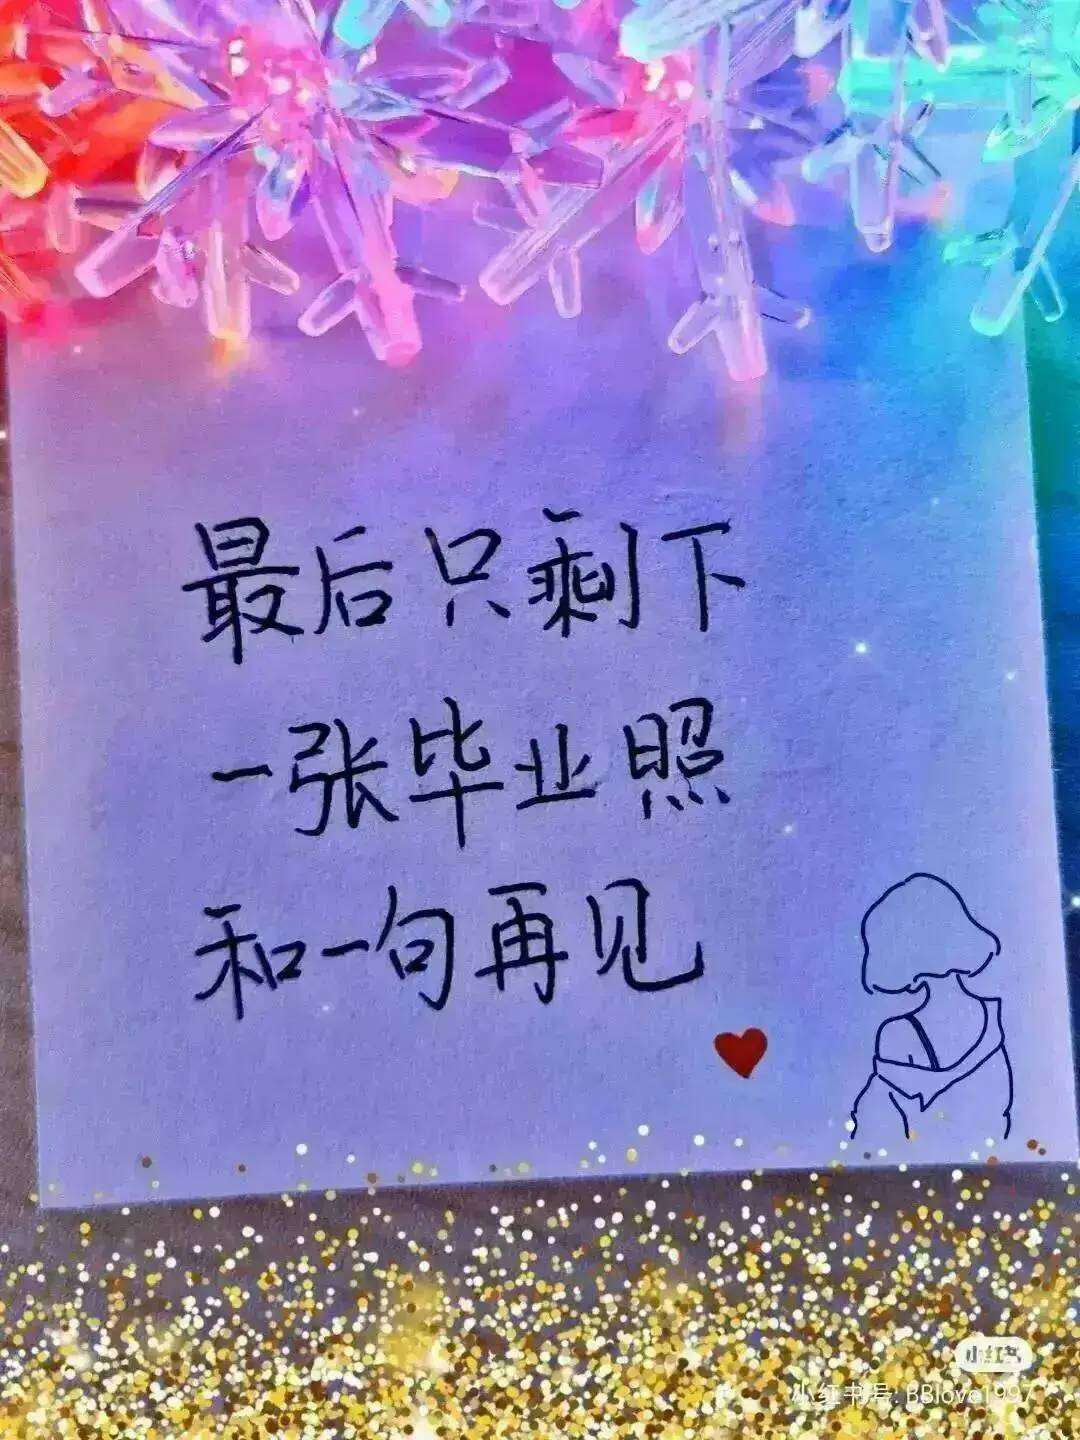 最后只剩下
一张毕业照
和一句再见
小红书
小红书号: BBlove1997